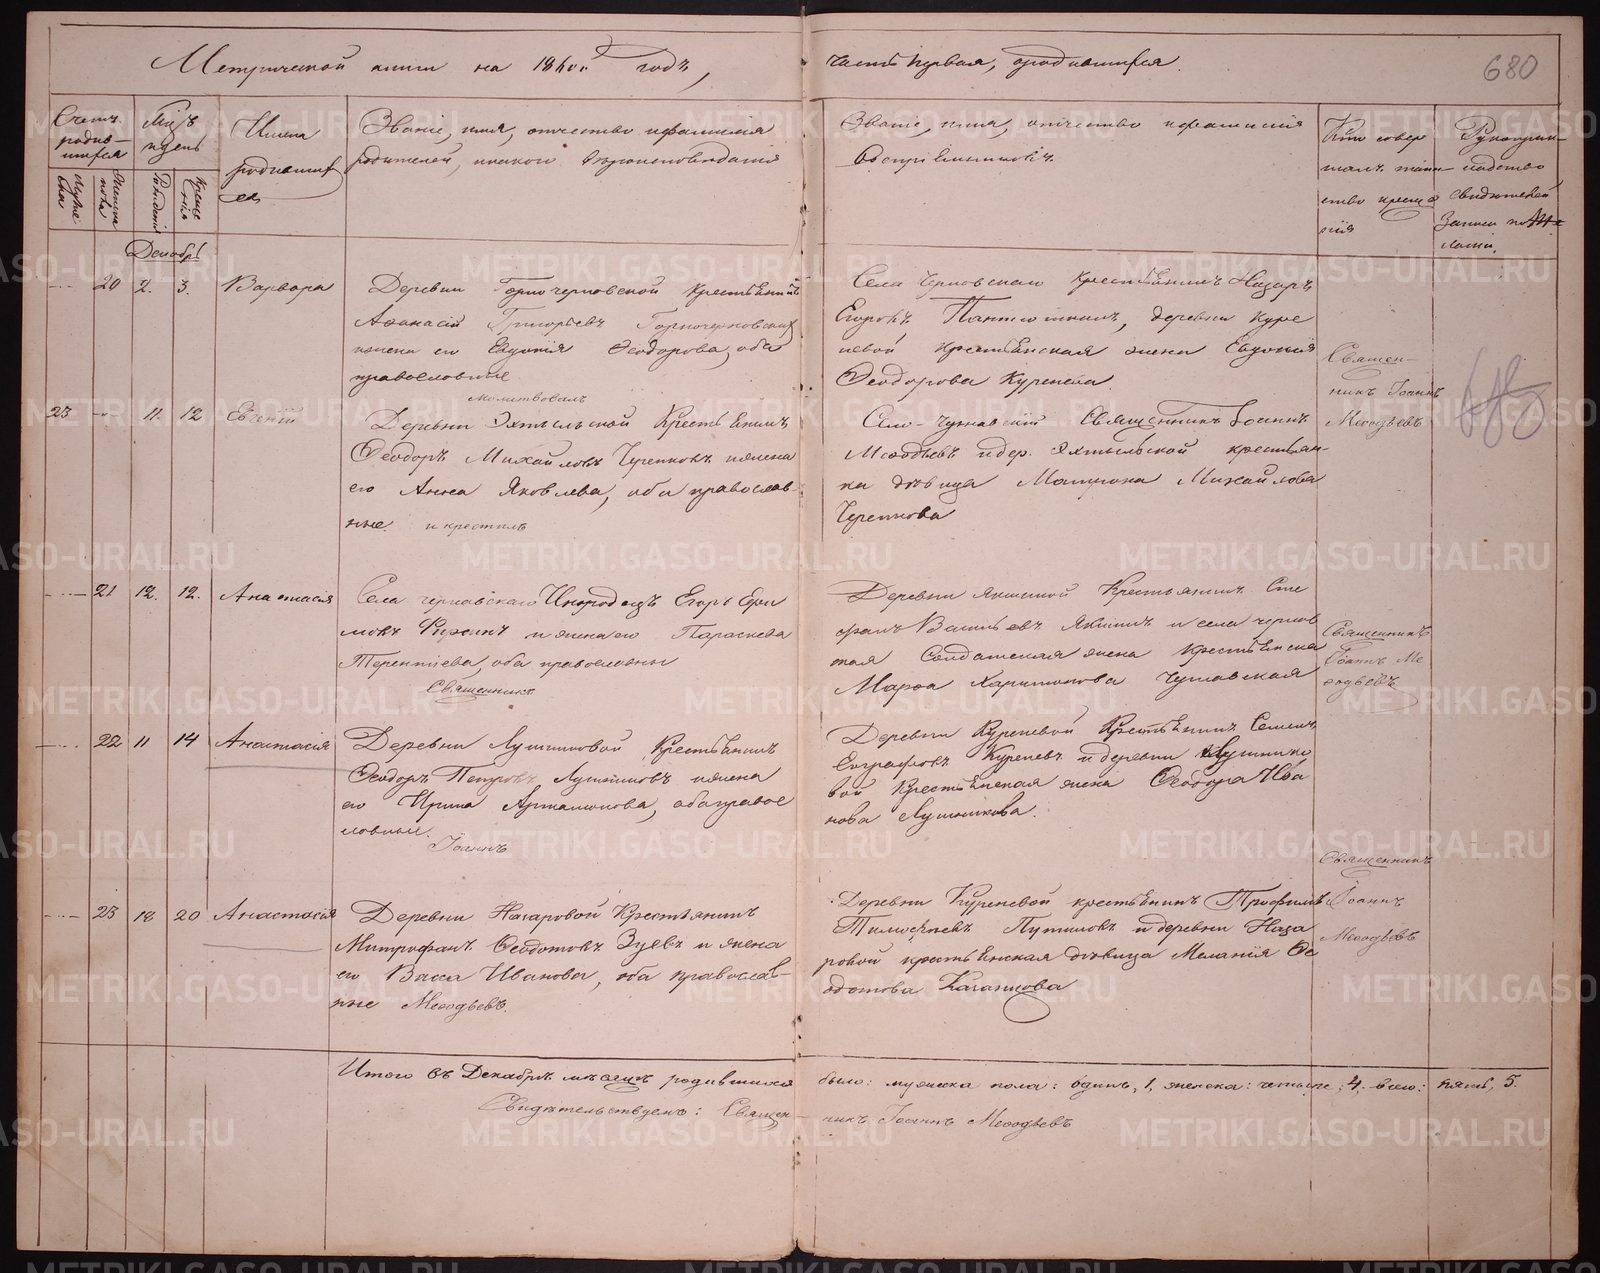 Метрической книги на 1860й годъ,
часть первая, о родившихся.
680
Счетъ родив-шихся
Мужеска
Женска пола
Мѣ-ць и день
Рожденія
Крещенія
Имена родившихся
Званіе, имя, отчество и фамилія
родителей, и какого вѣроисповѣданія
Званіе, имя, отчество и фамилія
воспріемниковъ
Кто совер
шалъ таин
ство креще
нія
Рукоприк-
ладство
свидѣтелей
записи по
Декабрь
20 2. 3. Варвара
Деревни Горночерновской крестьянинъ
Аѳанасій Григорьевъ Горночерновскихъ
и жена его Евдокія Ѳеодорова, оба
православные
Села Черновскаго крестьянинъ Назаръ
Егоровъ, деревни Куре
невой крестьянская жена Евдокія
Ѳеодорова Куренева
Священ-
никъ Іоаннъ
Меѳодьевъ
молитвовалъ
23 11. 12 Евгеній
Деревни крестьянинъ
Ѳеодоръ Михайловъ Черепковъ и жена
его Анна Яковлева, оба православ-
ные. и крестилъ
Священникъ Іоаннъ
Меѳодьевъ и дер. крестьян-
ка дѣвица Матрона Михайлова
21 12. 12. Анастасія
Села Чернавскаго Инородецъ Егоръ
и жена его Параскева
Терентіева, оба православны
Священникъ
Деревни Якшиной Крестьянинъ Сте
фанъ Васильевъ Якшинъ и села чернов
Солдатская жена крестьянска
Марѳа Харитонова
Священникъ
Іоаннъ Ме
ѳодьевъ
22 11 14 Анастасія
Деревни Лушниковой крестьянинъ
Ѳеодоръ Петровъ Лушниковъ и жена
его Ирина Артамонова, оба право
славные.
Іоаннъ
Деревни Куреневой Крестьянинъ Семенъ
Евграфовъ Куреневъ и деревни Лушнико
вой крестьянская жена Ѳеодора Ива
нова Лушникова.
Священникъ
Іоаннъ
Меѳодьевъ
23 18 20 Анастасія
Деревни Назаровой Крестьянинъ
Митрофанъ Ѳеодотовъ Зуевъ и жена
его Васса Иванова, оба православ-
ные Меѳодьевъ.
Деревни Куреневой крестьянинъ Трофимъ
Тимофеевъ Путиловъ и деревни Наза
ровой крестьянская дѣвица Меланія Ѳе
одотова
Итого въ Декабрѣ мѣсяцѣ родившихся
было: мужеска пола: одинъ, 1, женска: четыре, 4. всего: пять, 5.
Свидѣтельствуемъ: Священ-
никъ Іоаннъ Меѳодьевъ
METRIKI.GASO-URAL.RU